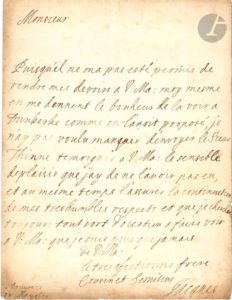 Monsieur
Puisquil ne ma pas esté permis de
rendre mes devoirs a V. Ma: moy mesme
en me donnent le bonheur de la voir a
comme on l'avoit proposé, je
nay pas voulu manquer denvoyer le Sieur
Thinne temoigner a V. Ma: le sensible
deplaisir que j'ay de ne l'avoir pas eu,
et au mesme temps l'assurer la continuation
de mes treshumbles respects et que je
tousjours tout d'occasion a faire voir
a V. Ma: que je suis plus que jamais
de V. Ma:
le tres affectionné frere
Cousin et Serviteur
Jacques